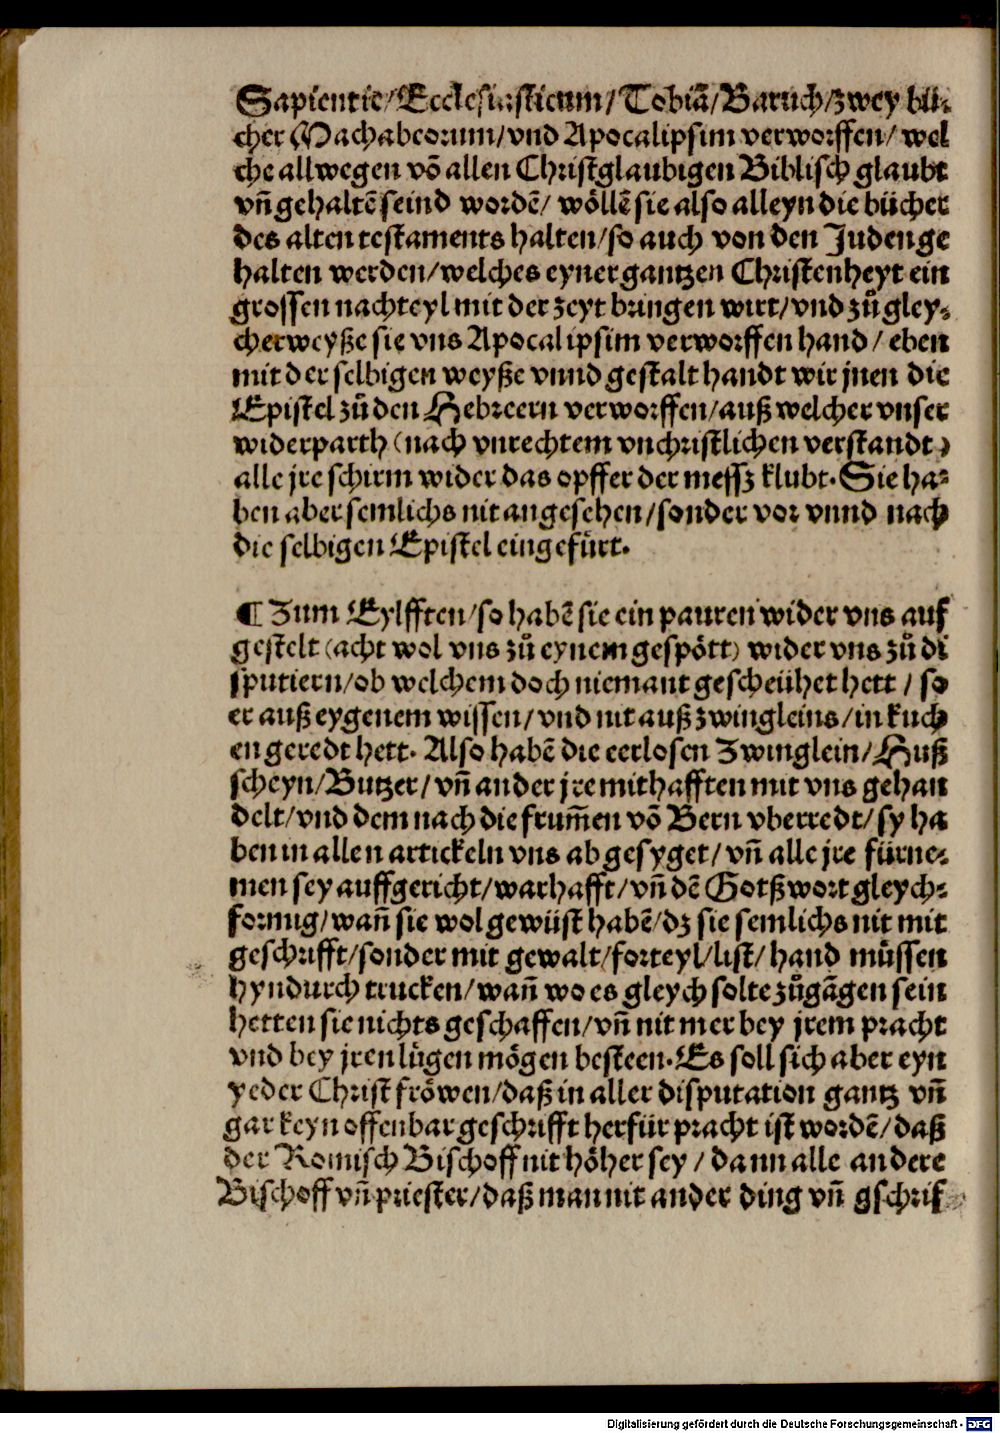 Sapientie/Ecclesiasticum/Tobiã/Baruch/zwey bü⸗
cher Machabeorum/vnd Apocalipsim verworffen/wel
che allwegen võ allen Christglaubigen Biblisch glaubt
vñ gehaltẽ seind wordẽ/ wöllẽ sie also alleyn die bücher
des alten testaments halten/so auch von den Juden ge
halten werden/welches eyner gantzen Christenheyt ein
grossen nachteyl mit der zeyt bringen wirt/vnd zů gley⸗
cherweyße sie vns Apocalipsim verworffen hand/ eben
mit der selbigen weyße vnnd gestalt handt wir jnen die
Epistel zů den Hebreern verworffen/auß welcher vnser
widerparth (nach vnrechtem vnchristlichen verstandt)
alle jre schirm wider das opffer der messz klubt. Sie ha⸗
ben aber semlichs nit angesehen/sonder vor vnnd nach
die selbigen Epistel eingefürt.
¶ Zum Eylfften/so habẽ sie ein pauren wider vns auf
gestelt (acht wol vns zů eynem gespött) wider vns zů di
sputiern/ob welchem doch niemant gescheühet hett / so
er auß eygenem wissen/vnd nit auß zwingleins/in kuch
en geredt hett. Also habẽ die eerlosen Zwinglein/Huß
scheyn/Butzer/vñ ander jre mithafften mit vns gehan
delt/vnd dem nach die frum̃en võ Bern vberredt/sy ha
ben in allen artickeln vns ab gesyget/vñ alle jre fürne⸗
men sey auffgericht/warhafft/vñ dẽ Gotßwort gleych⸗
formig/wañ sie wol gewüst habẽ/dz sie semlichs nit mit
geschrifft/sonder mit gewalt/forteyl/list/ hand müssen
hyndurch trucken/wañ wo es gleych solte zůgãgen sein
hetten sie nichts geschaffen/vñ nit mer bey jrem pracht
vnd bey jren lügen mögen besteen. Es soll sich aber eyn
yeder Christ fröwen/daß in aller disputation gantz vñ
gar keyn offenbar geschrifft herfür pracht ist wordẽ/daß
der Romisch Bischoff nit höher sey / dann alle andere
Bischoff vñ priester/daß man nit ander ding vñ gschrif
Digitalisierung gefördert durch die Deutsche Forschungsgemeinschaft - DFG